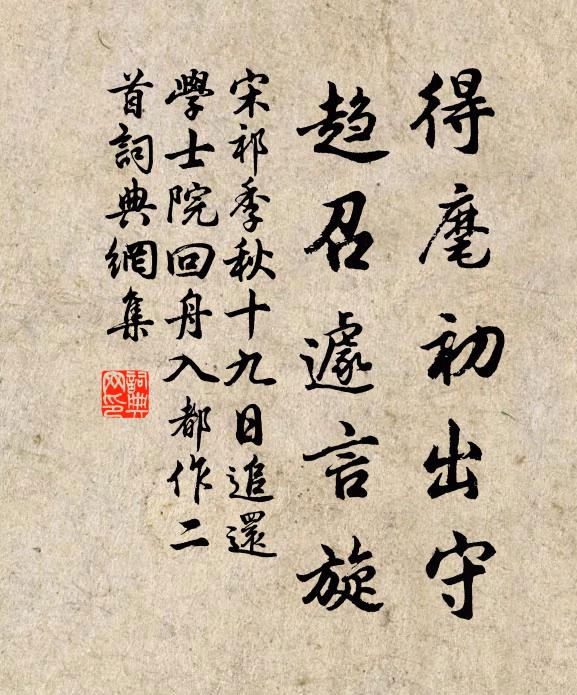 得麾初出守
趋召遽言旋
宋祁季秋十九日追還
學士院回舟入都作二
首詞典網集
詞典
网印